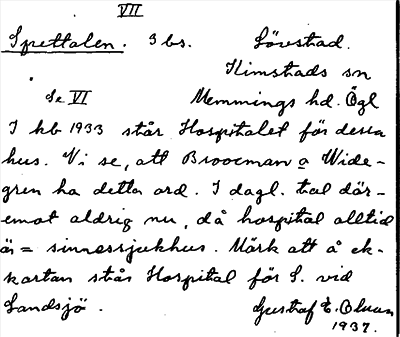 VII
Spettalen. 3 bs. Lövestad.
Kimstads sn
Se VI Memmings hd. Ögl
I kb 1933 står Hospitalet för dessa
hus. Vi se, att Broocman o Wide-
gren ha detta ord. I dagl. tal där-
emot aldrig nu, då hospital alltid
är = sinnessjukhus. Märk att å ek-
kartan står Hospital för S. vid
Landsjö. Gustaf E. Olsson
1937.